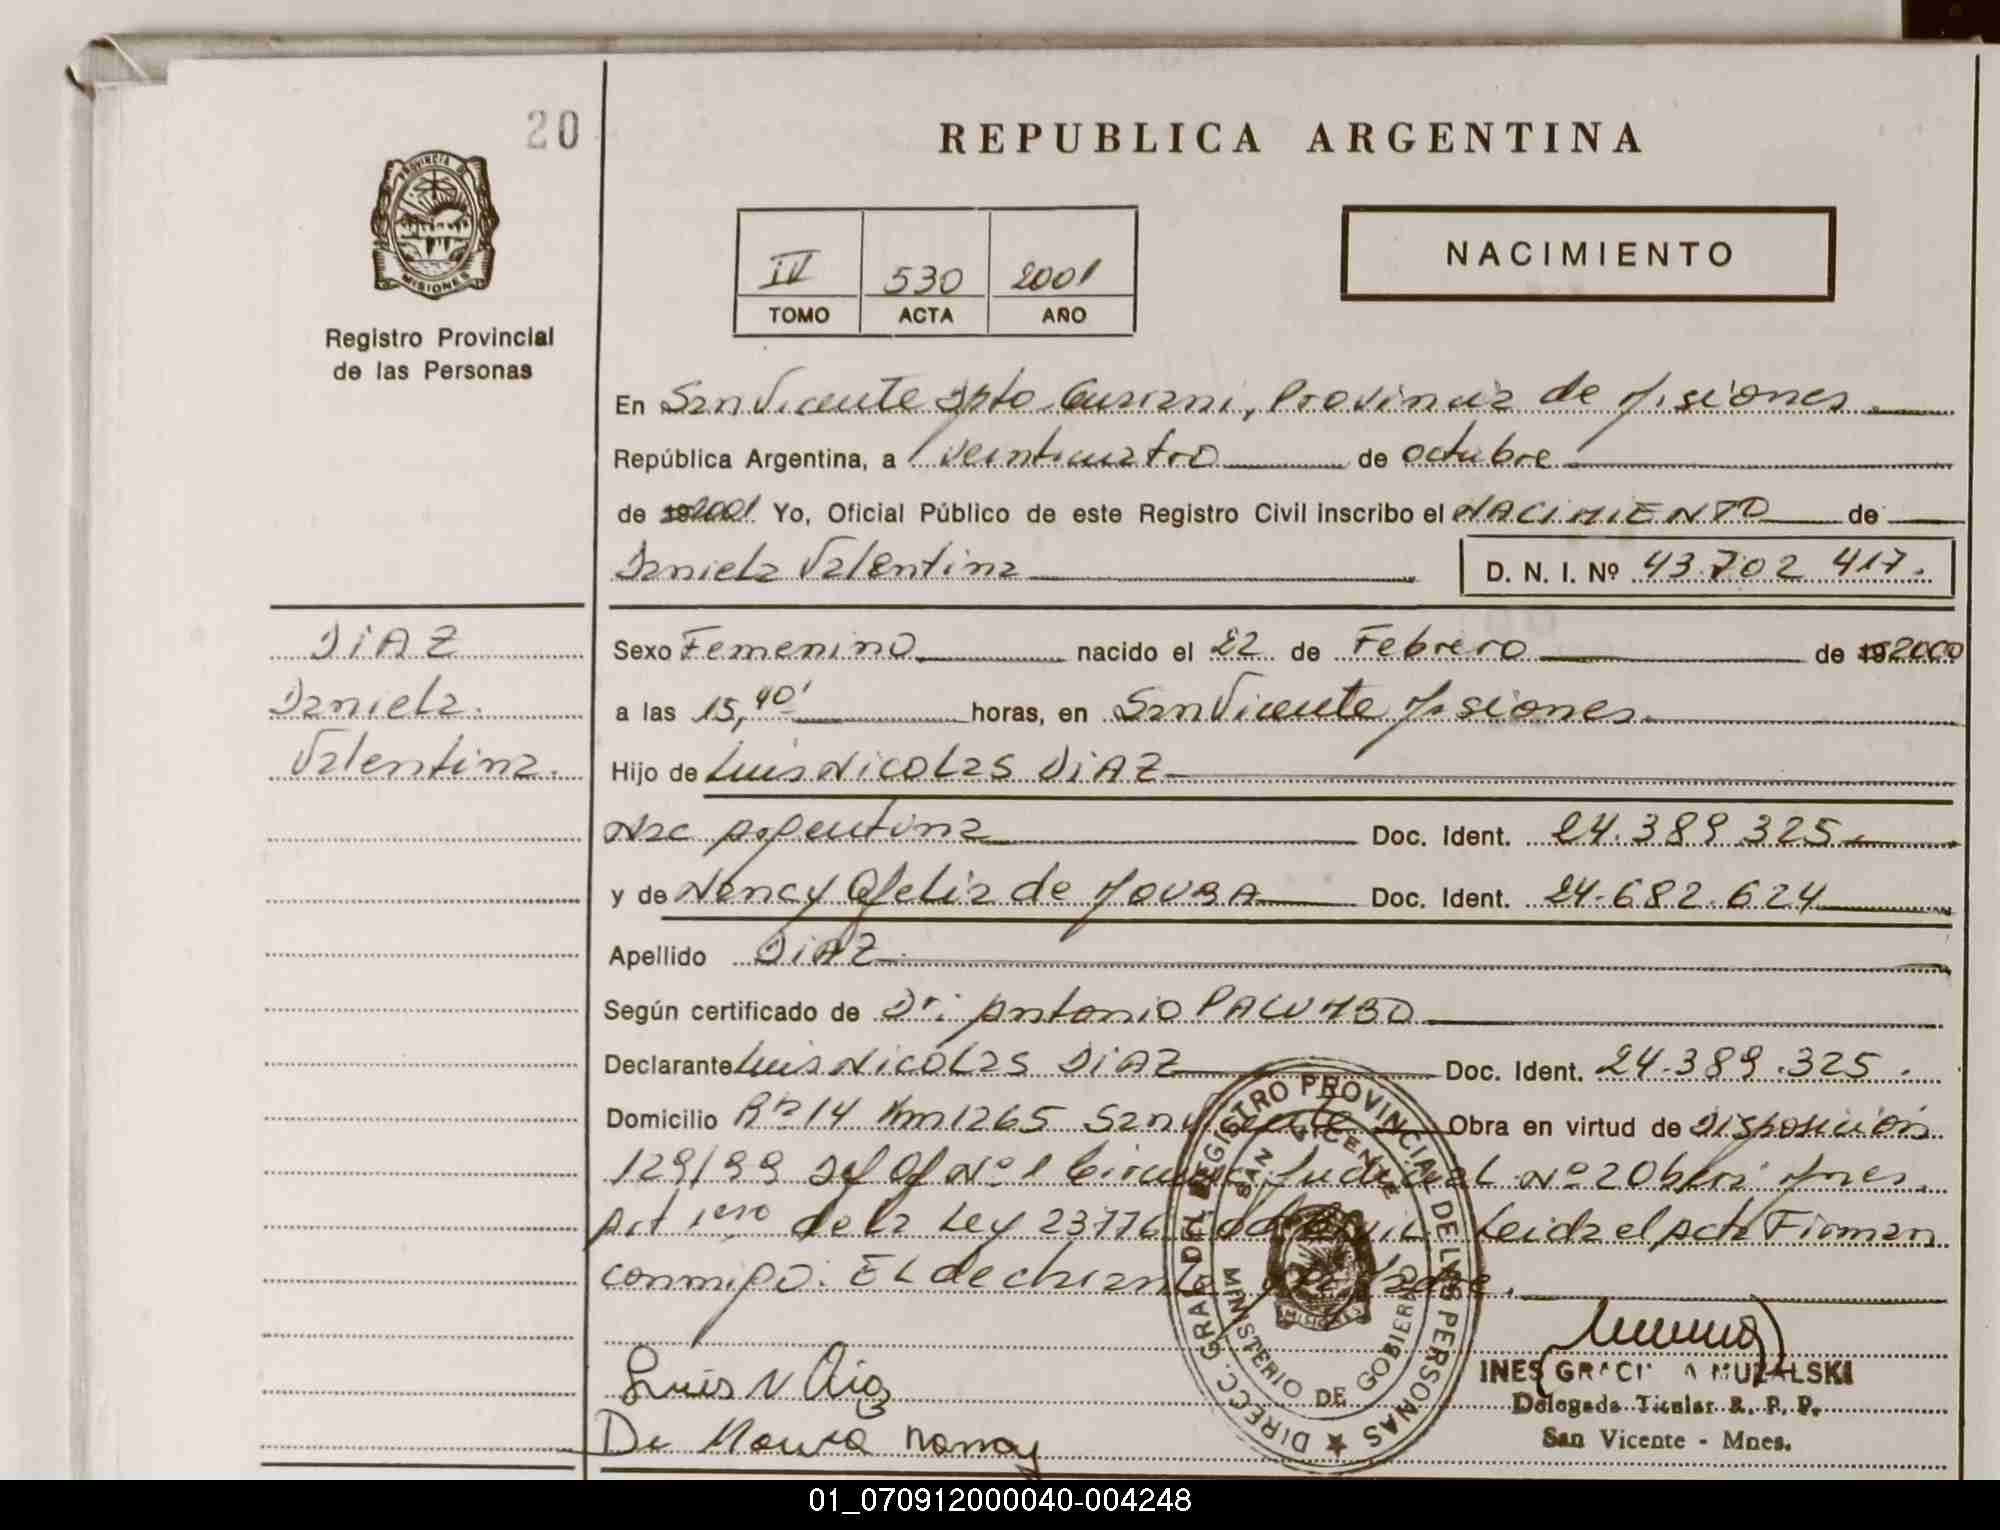 20
PROVINCIA DE
MISIONES
Registro Provincial
de las Personas
REPUBLICA ARGENTINA
IV 530 2001
TOMO ACTA AÑO
NACIMIENTO
En San Vicente Dpto Guarani, Provincia de Misiones
República Argentina, a veinticuatro de octubre
de 2001 Yo, Oficial Público de este Registro Civil inscribo el NACIMIENTO de
Daniela Valentina
D. N. I. Nº 43.702 417.
DIAZ
Daniela.
Valentina.
Sexo Femenino nacido el 22 de Febrero de 2000
a las 15,40' horas, en San Vicente Misiones
Hijo de Luis Nicolas DIAZ
Nac Argentina Doc. Ident. 24.389.325.
y de Nancy Ofelia de MOURA Doc. Ident. 24.682.624
Apellido DIAZ
Según certificado de Dr. Antonio
Declarante Luis Nicolas DIAZ Doc. Ident. 24.389.325.
Domicilio Rta 14 Km 1265 San Vicente Obra en virtud de Disposición
129/99 Def Of Nº 1 Circunc. Judicial Nº 2 Obera Mnes.
Art 1ero de la Ley 23776 Leida el Acta Firman
conmigo: El declarante y la Madre.
Luis N Diaz
De Moura Nancy
DIRECC. GRAL. DEL REGISTRO PROVINCIAL DE LAS PERSONAS
SAN VICENTE
MINISTERIO DE GOBIERNO
MISIONES
INES GRACIELA MUZALSKI
Delegada Titular R. P. P.
San Vicente - Mnes.
01_070912000040-004248